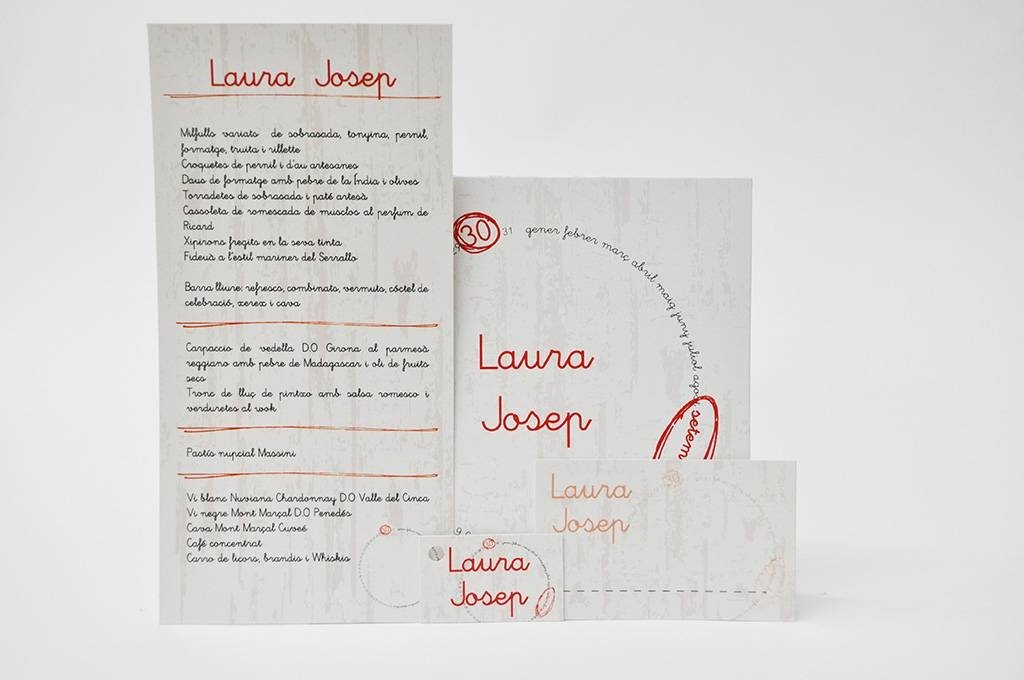 Laura Josep
Milfulls variats de sobrasada, tonyina, pernil,
formatge, truita i rillette
Croquetes de pernil i d'au artesanes
Daus de formatge amb pebre de la Índia i olives
Torradetes de sobrasada i paté artesà
Cassoleta de romescada de musclos al perfum de
Ricard
Xipirons fregits en la seva tinta
Fideuà a l'estil mariner del Serrallo
Barra lliure: refresco, combinats, vermuts, cóctel de
celebració, xerex i cava
Carpaccio de vedella D.O Girona al parmesà
reggiano amb pebre de Madagascar i oli de fruits
secs
Tronc de lluç de pintxo amb salsa romesco i
verduretes al wok
Pastís nupcial Massini
Vi blanc Nuviana Chardonnay D.O Valle del Cinca
Vi negre Mont Marçal D.O Penedés
Cava Mont Marçal Cuveé
Café concentrat
Carro de licors, brandis i Whiskis
29 30 31 gener febrer març abril maig juny juliol agost setem
Laura
Josep
Laura
Josep
30
Laura
Josep